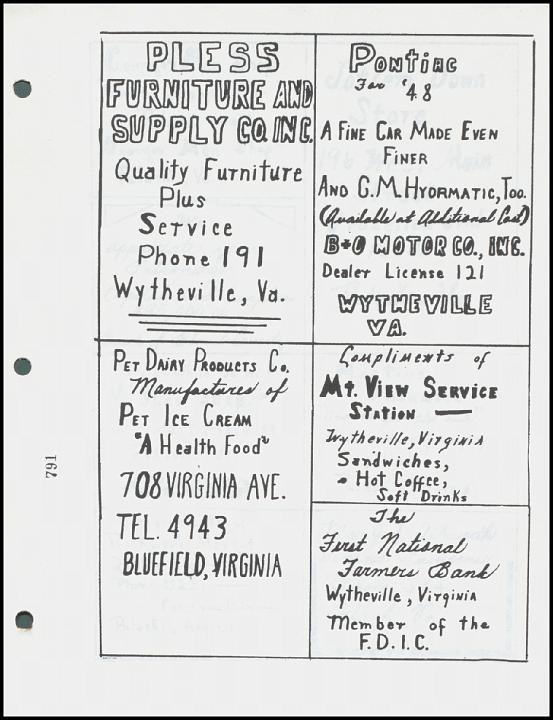 PLESS
FURNITURE AND
SUPPLY CO. INC.
Quality Furniture
Plus
Service
Phone 191
Wytheville, Va.
Pontiac
For '48
A Fine Car Made Even
Finer
And G.M. Hydrmatic, Too.
(Available at Additional Cost)
B+O MOTOR CO., INC.
Dealer License 121
WYTHEVILLE
VA.
Pet Dairy Products Co.
Manufactures of
Pet Ice Cream
"A Health Food"
708 VIRGINIA AVE.
TEL. 4943
BLUEFIELD, VIRGINIA
Compliments of
Mt. View Service
Station
Wytheville, Virginia
Sandwiches,
Hot Coffee,
Soft Drinks
The
First National
Farmers Bank
Wytheville, Virginia
Member of the
F.D.I.C.
791